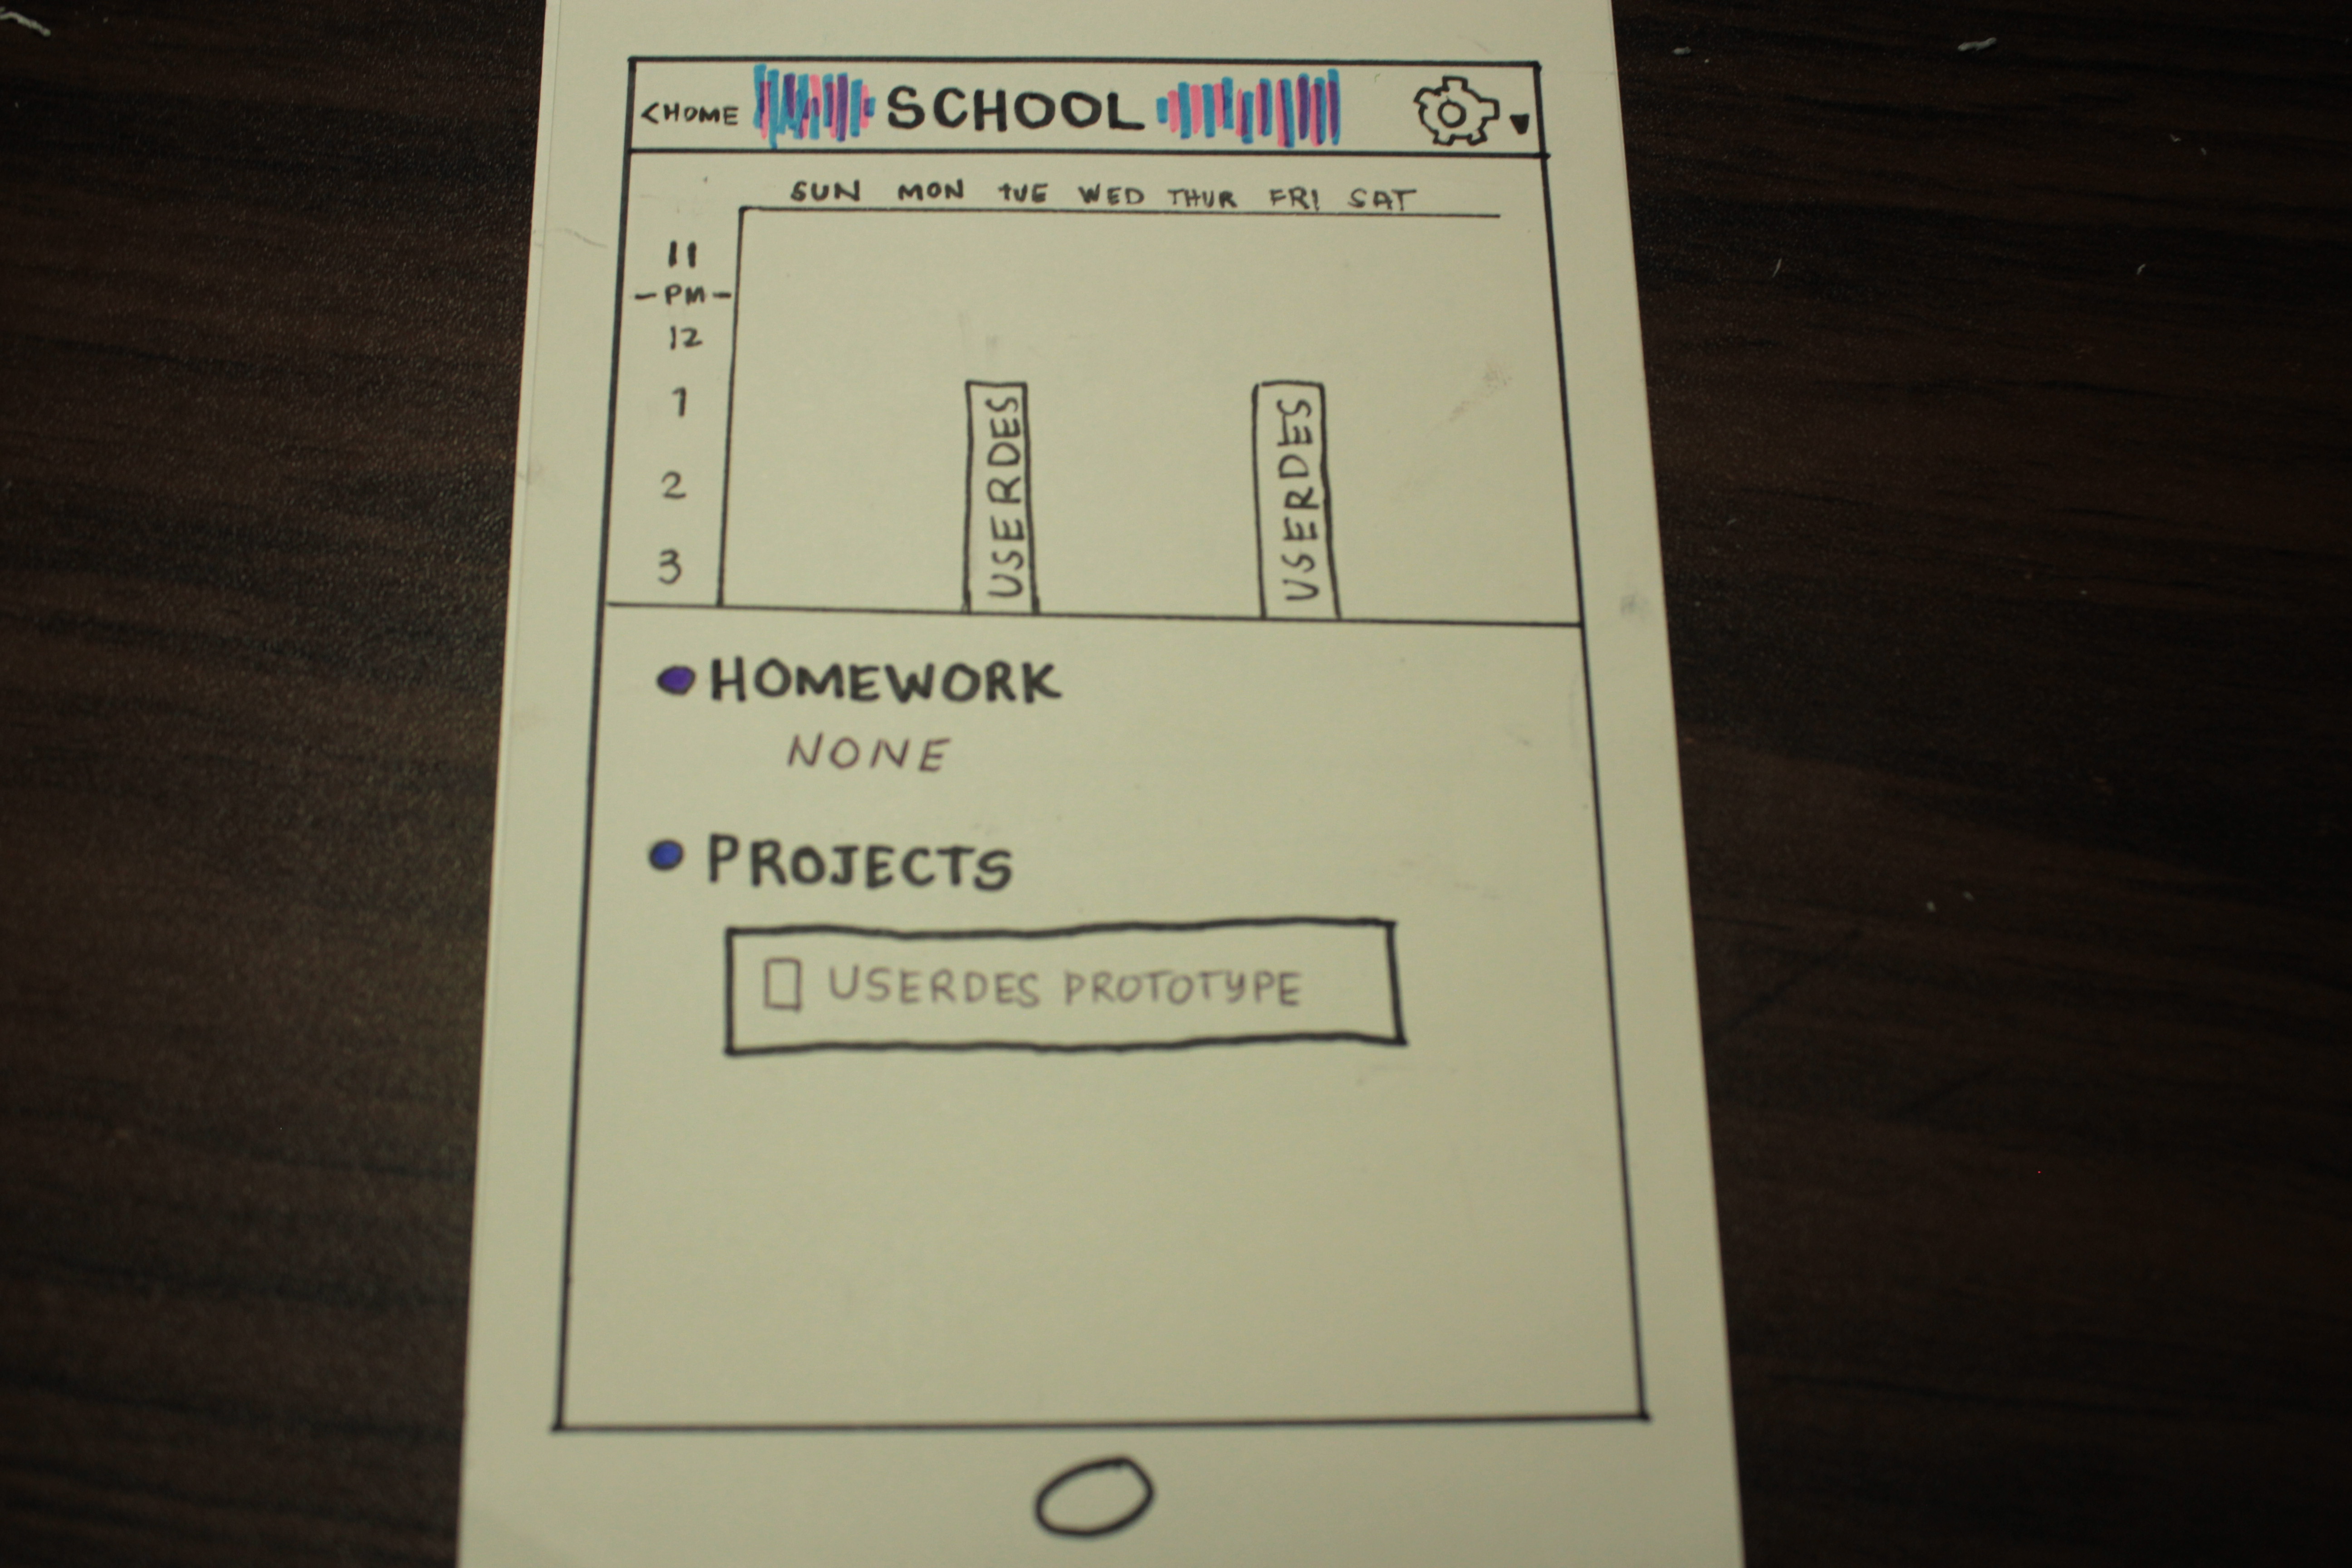 <HOME SCHOOL
SUN MON TUE WED THUR FRI SAT
11
-PM-
12
1
2
3
USERDES
USERDES
HOMEWORK
NONE
PROJECTS
USERDES PROTOTYPE